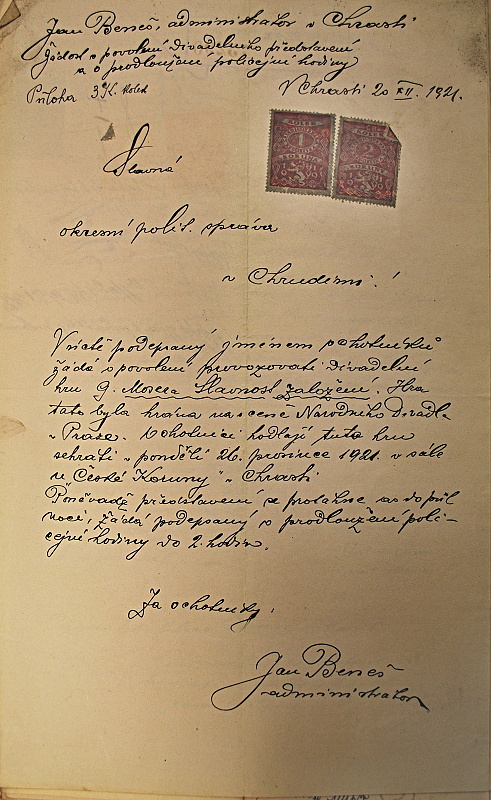 Jan Beneš, administrátor v Chrasti
Žádost o povolení divadelního představení
a o prodloužení policejní hodiny
Příloha 3 K. kolek V Chrasti 20 XII. 1921.
KOLEK KOLEK
1 2
KORUNA KORUNY
Slavná
okresní polit. správa
v Chrudimi!
V úctě podepsaný jménem ochotníků
žádá o povolení provozovati divadelní
hru G. Mosera Slavnost založení. Hra
tato byla hrána na scéně Národního divadla
v Praze. Ochotníci hodlají tuto hru
sehráti v pondělí 26. prosince 1921. v sále
u "České Koruny" v Chrasti
Poněvadž představení se protáhne as do půl
noci, žádá podepsaný o prodloužení poli-
cejní hodiny do 2. hodin.
Za ochotníky:
Jan Beneš
administrátor